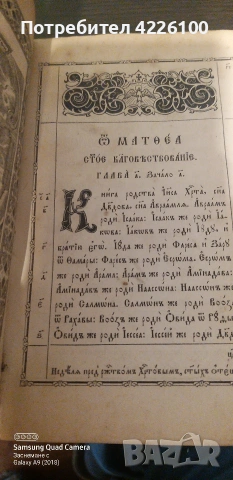 Потребител 4226100
Ѿ МАТѲЕА
СТОЕ БЛГОВѢСТВОВАНІЕ.
ГЛАВА а҃. Зачало а҃.
Книга родства Іиса Хрта, сна
Двдова, сна Авраамля. Авраамъ
роди Ісаака: Ісаакъ же роди Іа-
кѡва: Іакѡвъ же роди Іуду, и
братію егѡ. Іуда же роди Фареса и Зару
ѿ Ѳамары: Фаресъ же роди Есрѡма: Есрѡмъ
же роди Арама: Арамъ же роди Амінадава:
Амінадавъ же роди Наассѡна: Наассѡнъ же
роди Салмѡна: Салмѡнъ же роди Вооза
ѿ Рахавы: Воозъ же роди Овида ѿ Руѳы:
Овидъ же роди Іессеа: Іессей же роди Двда
Недѣля пред ржтвомъ Хртовымъ, стыхъ
Samsung Quad Camera
Заснемане с
Galaxy A9 (2018)
BAZAR